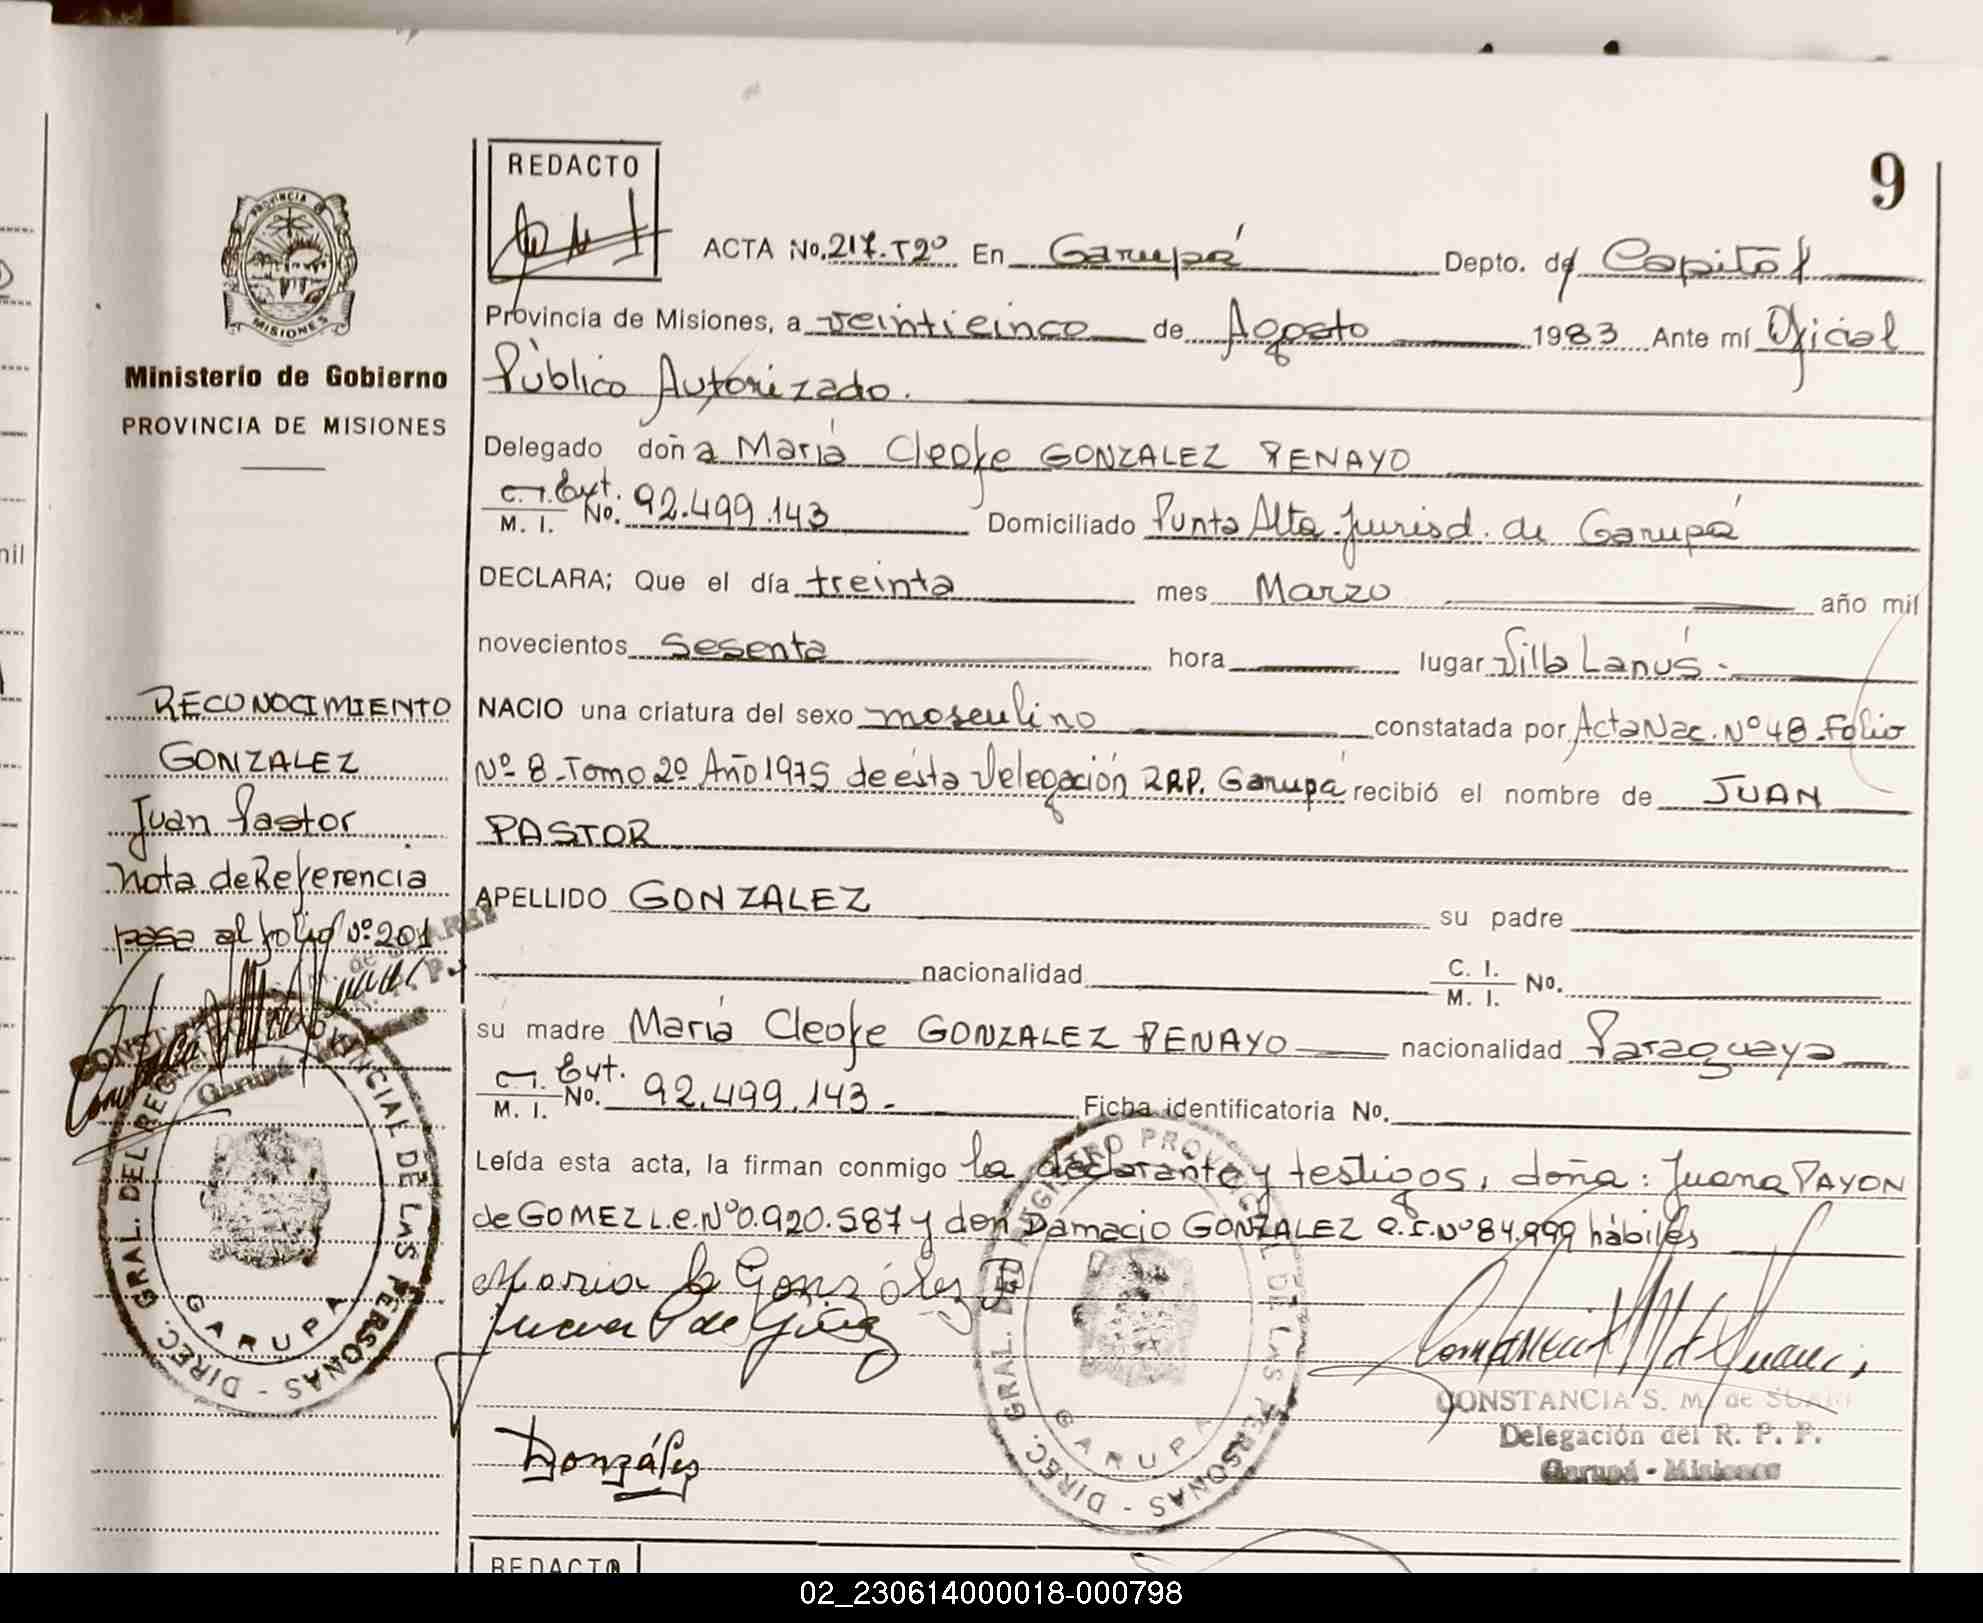 9
REDACTO
PROVINCIA DE
MISIONES
Ministerio de Gobierno
PROVINCIA DE MISIONES
ACTA No. 217.T2º En Garupá Depto. de Capital
Provincia de Misiones, a veinticinco de Agosto 1983 Ante mí Oficial
Público Autorizado.
Delegado doña Maria Cleofe GONZALEZ PENAYO
C.I. Ext. M. I. No. 92.499.143 Domiciliado Punta Alta Jurisd. de Garupá
DECLARA; Que el día treinta mes Marzo año mil
novecientos Sesenta hora lugar Villa Lanús.
NACIO una criatura del sexo masculino constatada por Acta Nac. Nº 48 Folio
Nº 8 Tomo 2º Año 1975 de ésta Delegación RRP. Garupá recibió el nombre de JUAN
PASTOR
APELLIDO GONZALEZ su padre
nacionalidad C. I. M. I. No.
su madre Maria Cleofe GONZALEZ PENAYO nacionalidad Paraguaya
C.I. Ext. M. I. No. 92.499.143.- Ficha identificatoria No.
Leída esta acta, la firman conmigo la declarante y testigos, doña: Juana PAYON
de GOMEZ L.e. Nº 0.920.587 y don Damacio GONZALEZ Nº 84.999 hábiles
Maria González
Juana P de
González
CONSTANCIA S. M. de
Delegación del R. P. P.
Garupá - Misiones
DIREC. GRAL. DEL REGISTRO PROVINCIAL DE LAS PERSONAS -
GARUPA
RECONOCIMIENTO
GONZALEZ
Juan Pastor
Nota de Referencia
pasa al folio Nº 201
Garupá
DIREC. GRAL. DEL PROVINCIAL DE LAS PERSONAS -
GARUPA
REDACTO
02_230614000018-000798